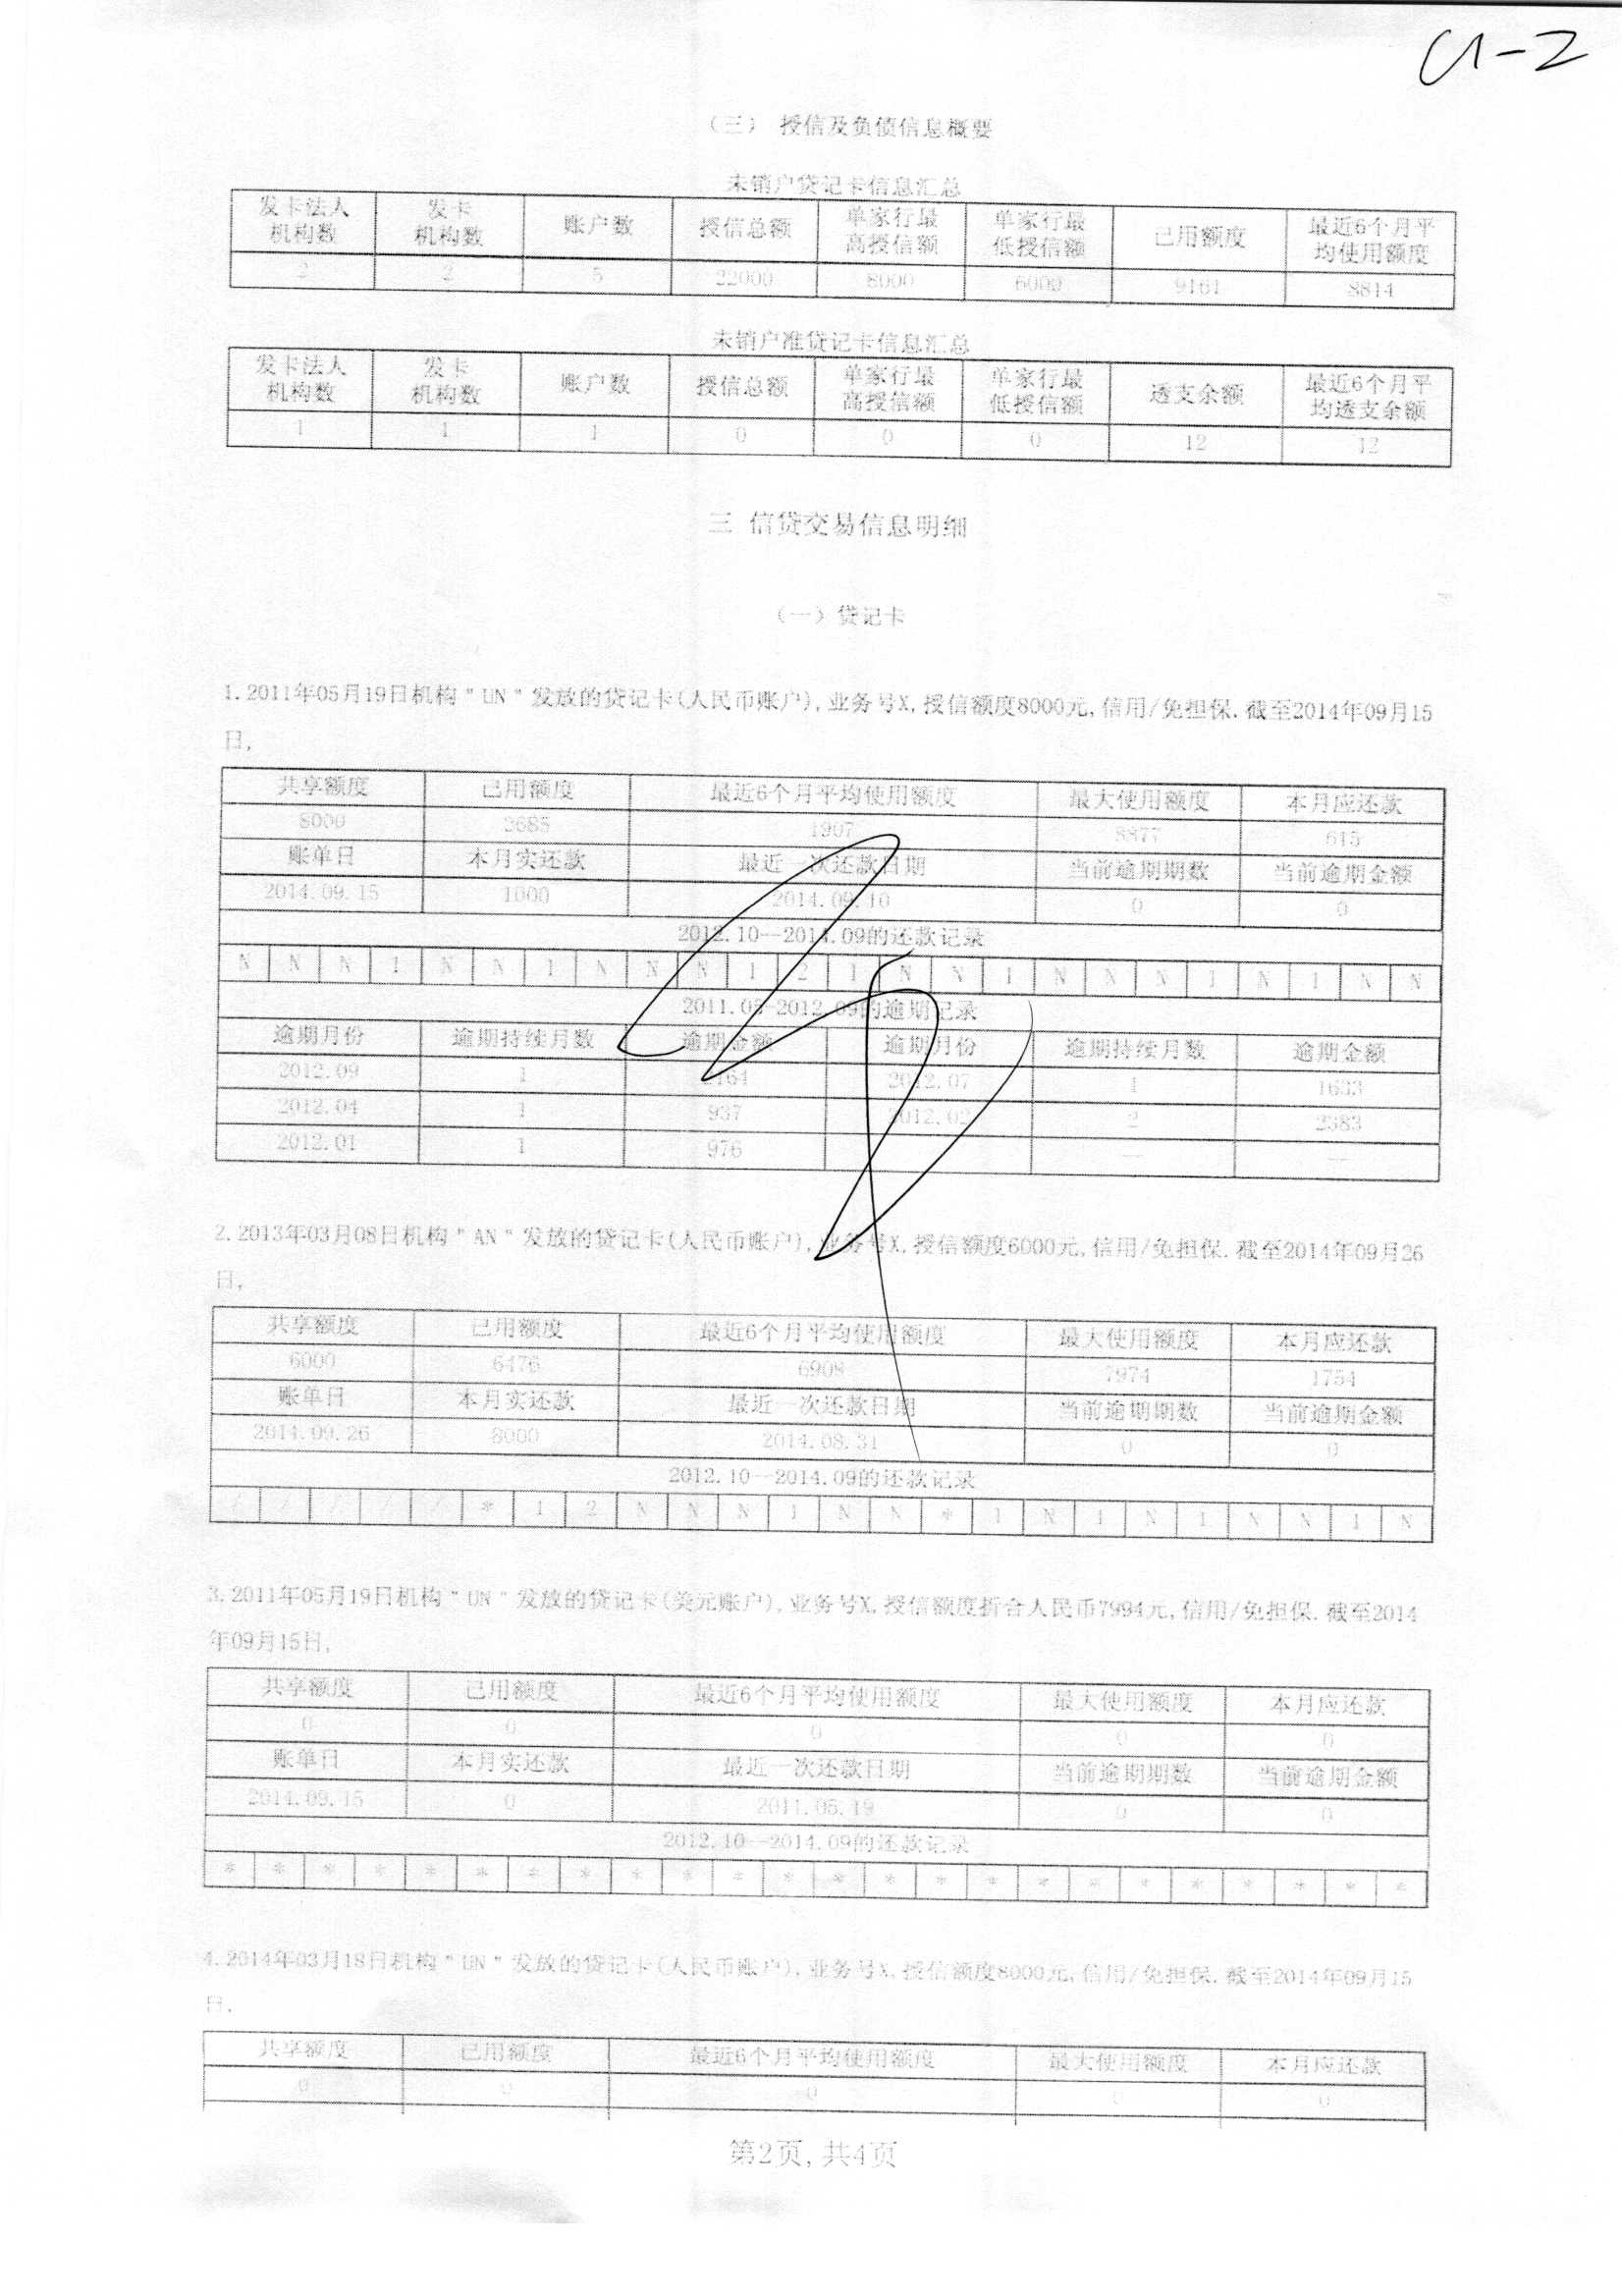 U-2
（三） 授信及负债信息概要
未销户贷记卡信息汇总
发卡法人机构数 发卡机构数 账户数 授信总额 单家行最高授信额 单家行最低授信额 已用额度 最近6个月平均使用额度
2 2 5 22000 8000 6000 9161 8814
未销户准贷记卡信息汇总
发卡法人机构数 发卡机构数 账户数 授信总额 单家行最高授信额 单家行最低授信额 透支余额 最近6个月平均透支余额
1 1 1 0 0 0 12 12
三 信贷交易信息明细
（一）贷记卡
1.2011年05月19日机构"UN"发放的贷记卡(人民币账户),业务号X,授信额度8000元,信用/免担保.截至2014年09月15
日,
共享额度 已用额度 最近6个月平均使用额度 最大使用额度 本月应还款
8000 2685 1907 8877 615
账单日 本月实还款 最近一次还款日期 当前逾期期数 当前逾期金额
2014.09.15 1000 2014.09.10 0 0
2012.10--2014.09的还款记录
N N N 1 N N 1 N N N 1 2 1 N N 1 N N N 1 N 1 N N
2011.05-2012.09的逾期记录
逾期月份 逾期持续月数 逾期金额 逾期月份 逾期持续月数 逾期金额
2012.09 1 2012.07 1 1633
2012.04 1 937 2012.02 2 2383
2012.01 1 976 -- --
2.2013年03月08日机构"AN"发放的贷记卡(人民币账户),业务号X,授信额度6000元,信用/免担保.截至2014年09月26
日,
共享额度 已用额度 最近6个月平均使用额度 最大使用额度 本月应还款
6000 6476 6908 7974 1754
账单日 本月实还款 最近一次还款日期 当前逾期期数 当前逾期金额
2014.09.26 8000 2014.08.31 0 0
2012.10--2014.09的还款记录
/ / / / / * 1 2 N N N 1 N N * 1 N 1 N 1 N N 1 N
3.2011年05月19日机构"UN"发放的贷记卡(美元账户),业务号X,授信额度折合人民币7994元,信用/免担保.截至2014
年09月15日,
共享额度 已用额度 最近6个月平均使用额度 最大使用额度 本月应还款
0 0 0 0 0
账单日 本月实还款 最近一次还款日期 当前逾期期数 当前逾期金额
2014.09.15 0 2011.05.19 0 0
2012.10--2014.09的还款记录
* * * * * * * * * * * * * * * * * * * * * * * *
4.2014年03月18日机构"UN"发放的贷记卡(人民币账户),业务号X,授信额度8000元,信用/免担保.截至2014年09月15
日,
共享额度 已用额度 最近6个月平均使用额度 最大使用额度 本月应还款
0 0 0 0 0
第2页,共4页